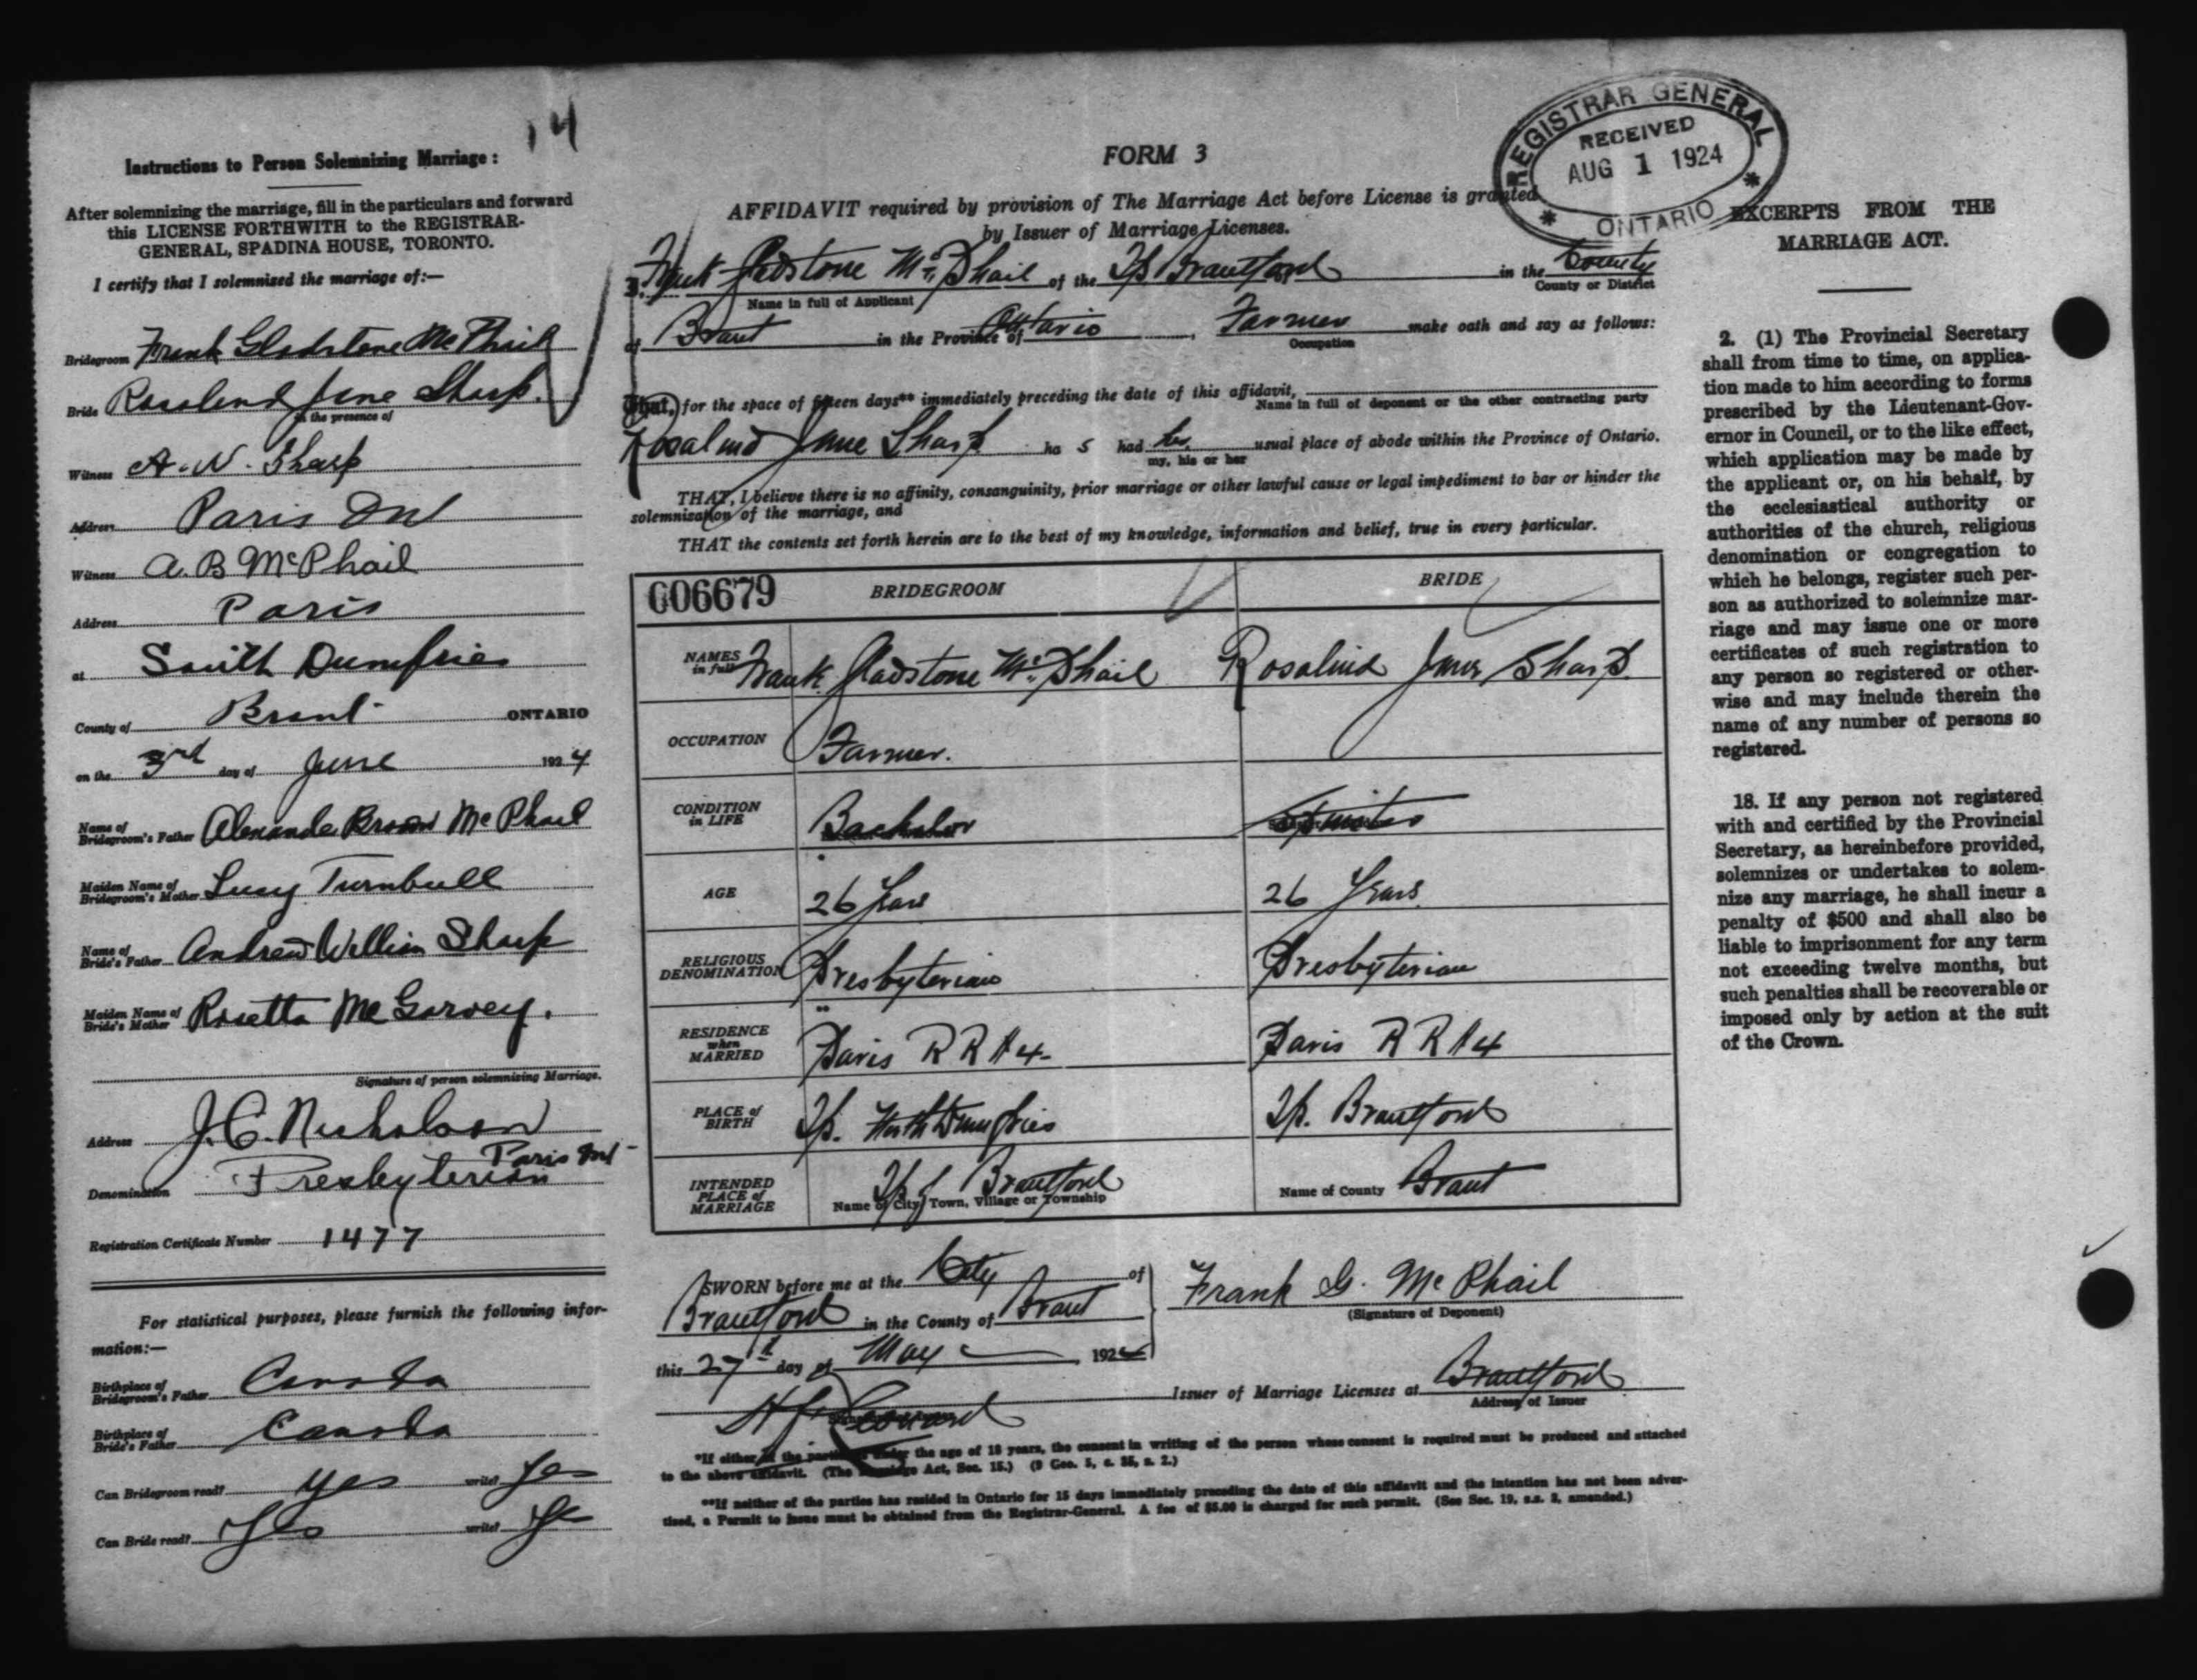 14
Instructions to Person Solemnizing Marriage :
After solemnizing the marriage, fill in the particulars and forward
this LICENSE FORTHWITH to the REGISTRAR-
GENERAL, SPADINA HOUSE, TORONTO.
I certify that I solemnised the marriage of:—
Bridegroom Frank Gladstone McPhail
Bride Rosalind Jane Sharp.
in the presence of
Witness A. W. Sharp
Address Paris Ont
Witness A. B McPhail
Address Paris
at South Dumfries
County of Brant ONTARIO
on the 3rd day of June 1924
Name of
Bridegroom's Father Alexander Brown McPhail
Maiden Name of
Bridegroom's Mother Lucy Turnbull
Name of
Bride's Father Andrew William Sharp
Maiden Name of
Bride's Mother Rosetta McGarvey.
Signature of person solemnizing Marriage.
J. C. Nicholson
Address Paris Ont
Denomination Presbyterian
Registration Certificate Number 1477
For statistical purposes, please furnish the following infor-
mation:—
Birthplace of
Bridegroom's Father Canada
Birthplace of
Bride's Father Canada
Can Bridegroom read? yes write? yes
Can Bride read? Yes write? Ye
FORM 3
REGISTRAR GENERAL
RECEIVED
AUG 1 1924
ONTARIO
AFFIDAVIT required by provision of The Marriage Act before License is granted
by Issuer of Marriage Licenses.
I, Frank Gladstone McPhail of the Tp Brantford in the County
Name in full of Applicant County or District
of Brant in the Province of Ontario, Farmer make oath and say as follows:
Occupation
That, for the space of fifteen days** immediately preceding the date of this affidavit,
Name in full of deponent or the other contracting party
Rosalind Jane Sharp ha s had her usual place of abode within the Province of Ontario.
my, his or her
THAT, I believe there is no affinity, consanguinity, prior marriage or other lawful cause or legal impediment to bar or hinder the
solemnization of the marriage, and
THAT the contents set forth herein are to the best of my knowledge, information and belief, true in every particular.
006679 BRIDEGROOM BRIDE
NAMES
in full Frank Gladstone McPhail Rosalind Jane Sharp.
OCCUPATION Farmer.
CONDITION
in LIFE Bachelor Spinster
AGE 26 Years 26 Years
RELIGIOUS
DENOMINATION Presbyterian Presbyterian
RESIDENCE
when
MARRIED Paris R R #4 Paris R R #4
PLACE of
BIRTH Tp. North Dumfries Tp. Brantford
INTENDED
PLACE of
MARRIAGE Tp of Brantford Name of County Brant
Name of City, Town, Village or Township
SWORN before me at the City of
Brantford in the County of Brant
this 27th day of May 192
Frank G. McPhail
(Signature of Deponent)
Issuer of Marriage Licenses at Brantford
Address of Issuer
*If either of the parties is under the age of 18 years, the consent in writing of the person whose consent is required must be produced and attached
to the above affidavit. (The Marriage Act, Sec. 15.) (9 Geo. 5, c. 35, s. 2.)
**If neither of the parties has resided in Ontario for 15 days immediately preceding the date of this affidavit and the intention has not been adver-
tised, a Permit to Issue must be obtained from the Registrar-General. A fee of $5.00 is charged for such permit. (See Sec. 19, s.s. 2, amended.)
EXCERPTS FROM THE
MARRIAGE ACT.
2. (1) The Provincial Secretary
shall from time to time, on applica-
tion made to him according to forms
prescribed by the Lieutenant-Gov-
ernor in Council, or to the like effect,
which application may be made by
the applicant or, on his behalf, by
the ecclesiastical authority or
authorities of the church, religious
denomination or congregation to
which he belongs, register such per-
son as authorized to solemnize mar-
riage and may issue one or more
certificates of such registration to
any person so registered or other-
wise and may include therein the
name of any number of persons so
registered.
18. If any person not registered
with and certified by the Provincial
Secretary, as hereinbefore provided,
solemnizes or undertakes to solem-
nize any marriage, he shall incur a
penalty of $500 and shall also be
liable to imprisonment for any term
not exceeding twelve months, but
such penalties shall be recoverable or
imposed only by action at the suit
of the Crown.